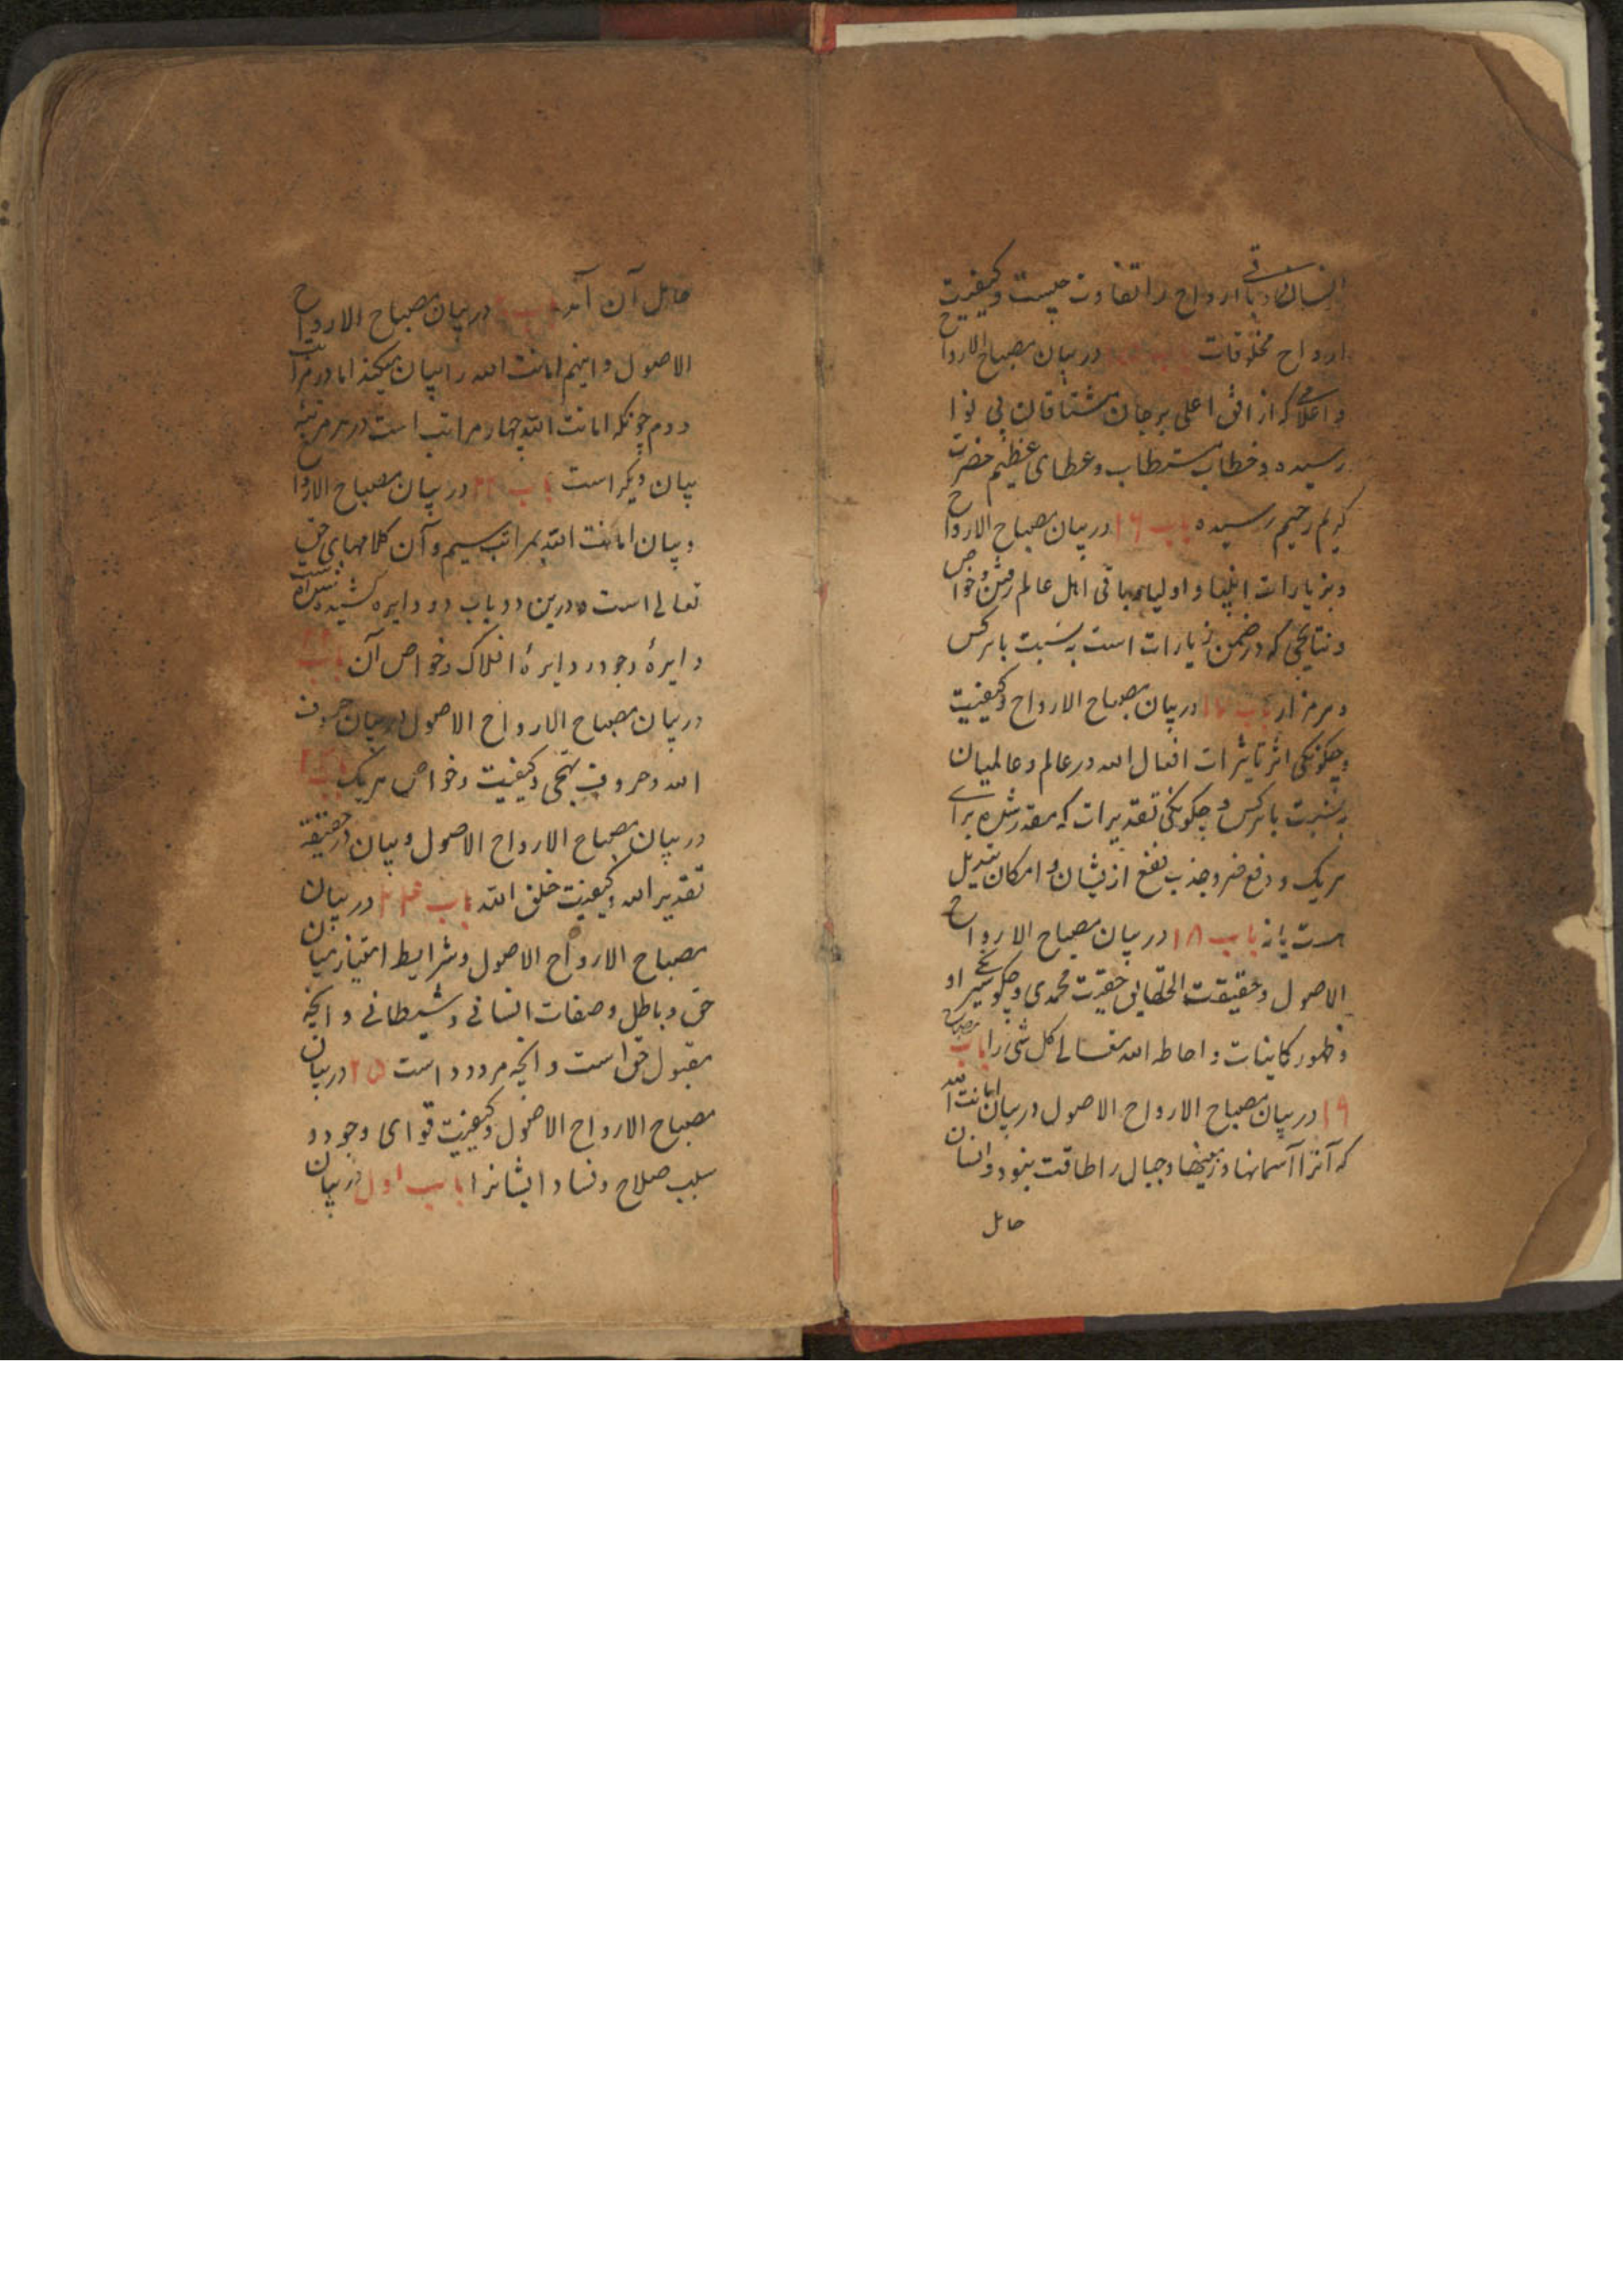 ارواح را تفاوت چیست و کیفیت
ارواح مخلوقات باب در بیان مصباح الارواح
که از افق اعلی بر جان مشتاقان بی نوا
رسیده و خطاب مستطاب و عطای عظیم حضرت
کریم رحیم رسیده باب ۱۶ در بیان مصباح الارواح
و بزیارات انبیا و اولیا باقی اهل عالم رفتن و خواص
و نتایجی که در ضمن زیارات است به نسبت با هر کس
و هر مزار باب در بیان مصباح الارواح و کیفیت
و چگونگی اثر تاثیرات افعال الله در عالم و عالمیان
به نسبت با هر کس و چگونگی تقدیرات که مقدر شده برای
هریک و دفع ضر و جذب نفع ازیشان و امکان تبدیل
هست یا نه باب ۱۸ در بیان مصباح الارواح
الاصول و حقیقت الحقایق حضرت محمدی و چگونگی سیر او
و ظهور کاینات و احاطه الله تعالی کل شی را باب
۱۹ در بیان مصباح الارواح الاصول در بیان امانت الله
که آنرا آسمانها و زمینها و جبال را طاقت نبود و انسان
حامل
حامل آن آمد باب در بیان مصباح الارواح
الاصول و اینهم امانت الله را بیان میکند اما در مرتبت
دوم چونکه امانت الله چهار مراتب است در هر مرتبه
بیان دیگر است باب در بیان مصباح الارواح
و بیان امانت الله بمراتب سیم و آن کلامهای حق
تعالی است و درین دو باب دو دایره کشیده شده است
دایرهٔ وجود و دایرهٔ افلاک و خواص آن باب
در بیان مصباح الارواح الاصول در بیان حروف
الله و حروف تهجی و کیفیت و خواص هریک باب
در بیان مصباح الارواح الاصول و بیان در حقیقة
تقدیر الله و کیفیت خلق الله باب ۲۴ در بیان
مصباح الارواح الاصول و شرایط امتیاز میان
حق و باطل و صفات انسانی و شیطانی و انچه
مقبول حق است و انچه مردود است ۲۵ در بیان
مصباح الارواح الاصول و کیفیت قوای وجود و
سلب صلاح و فساد ایشانرا باب اول در بیان